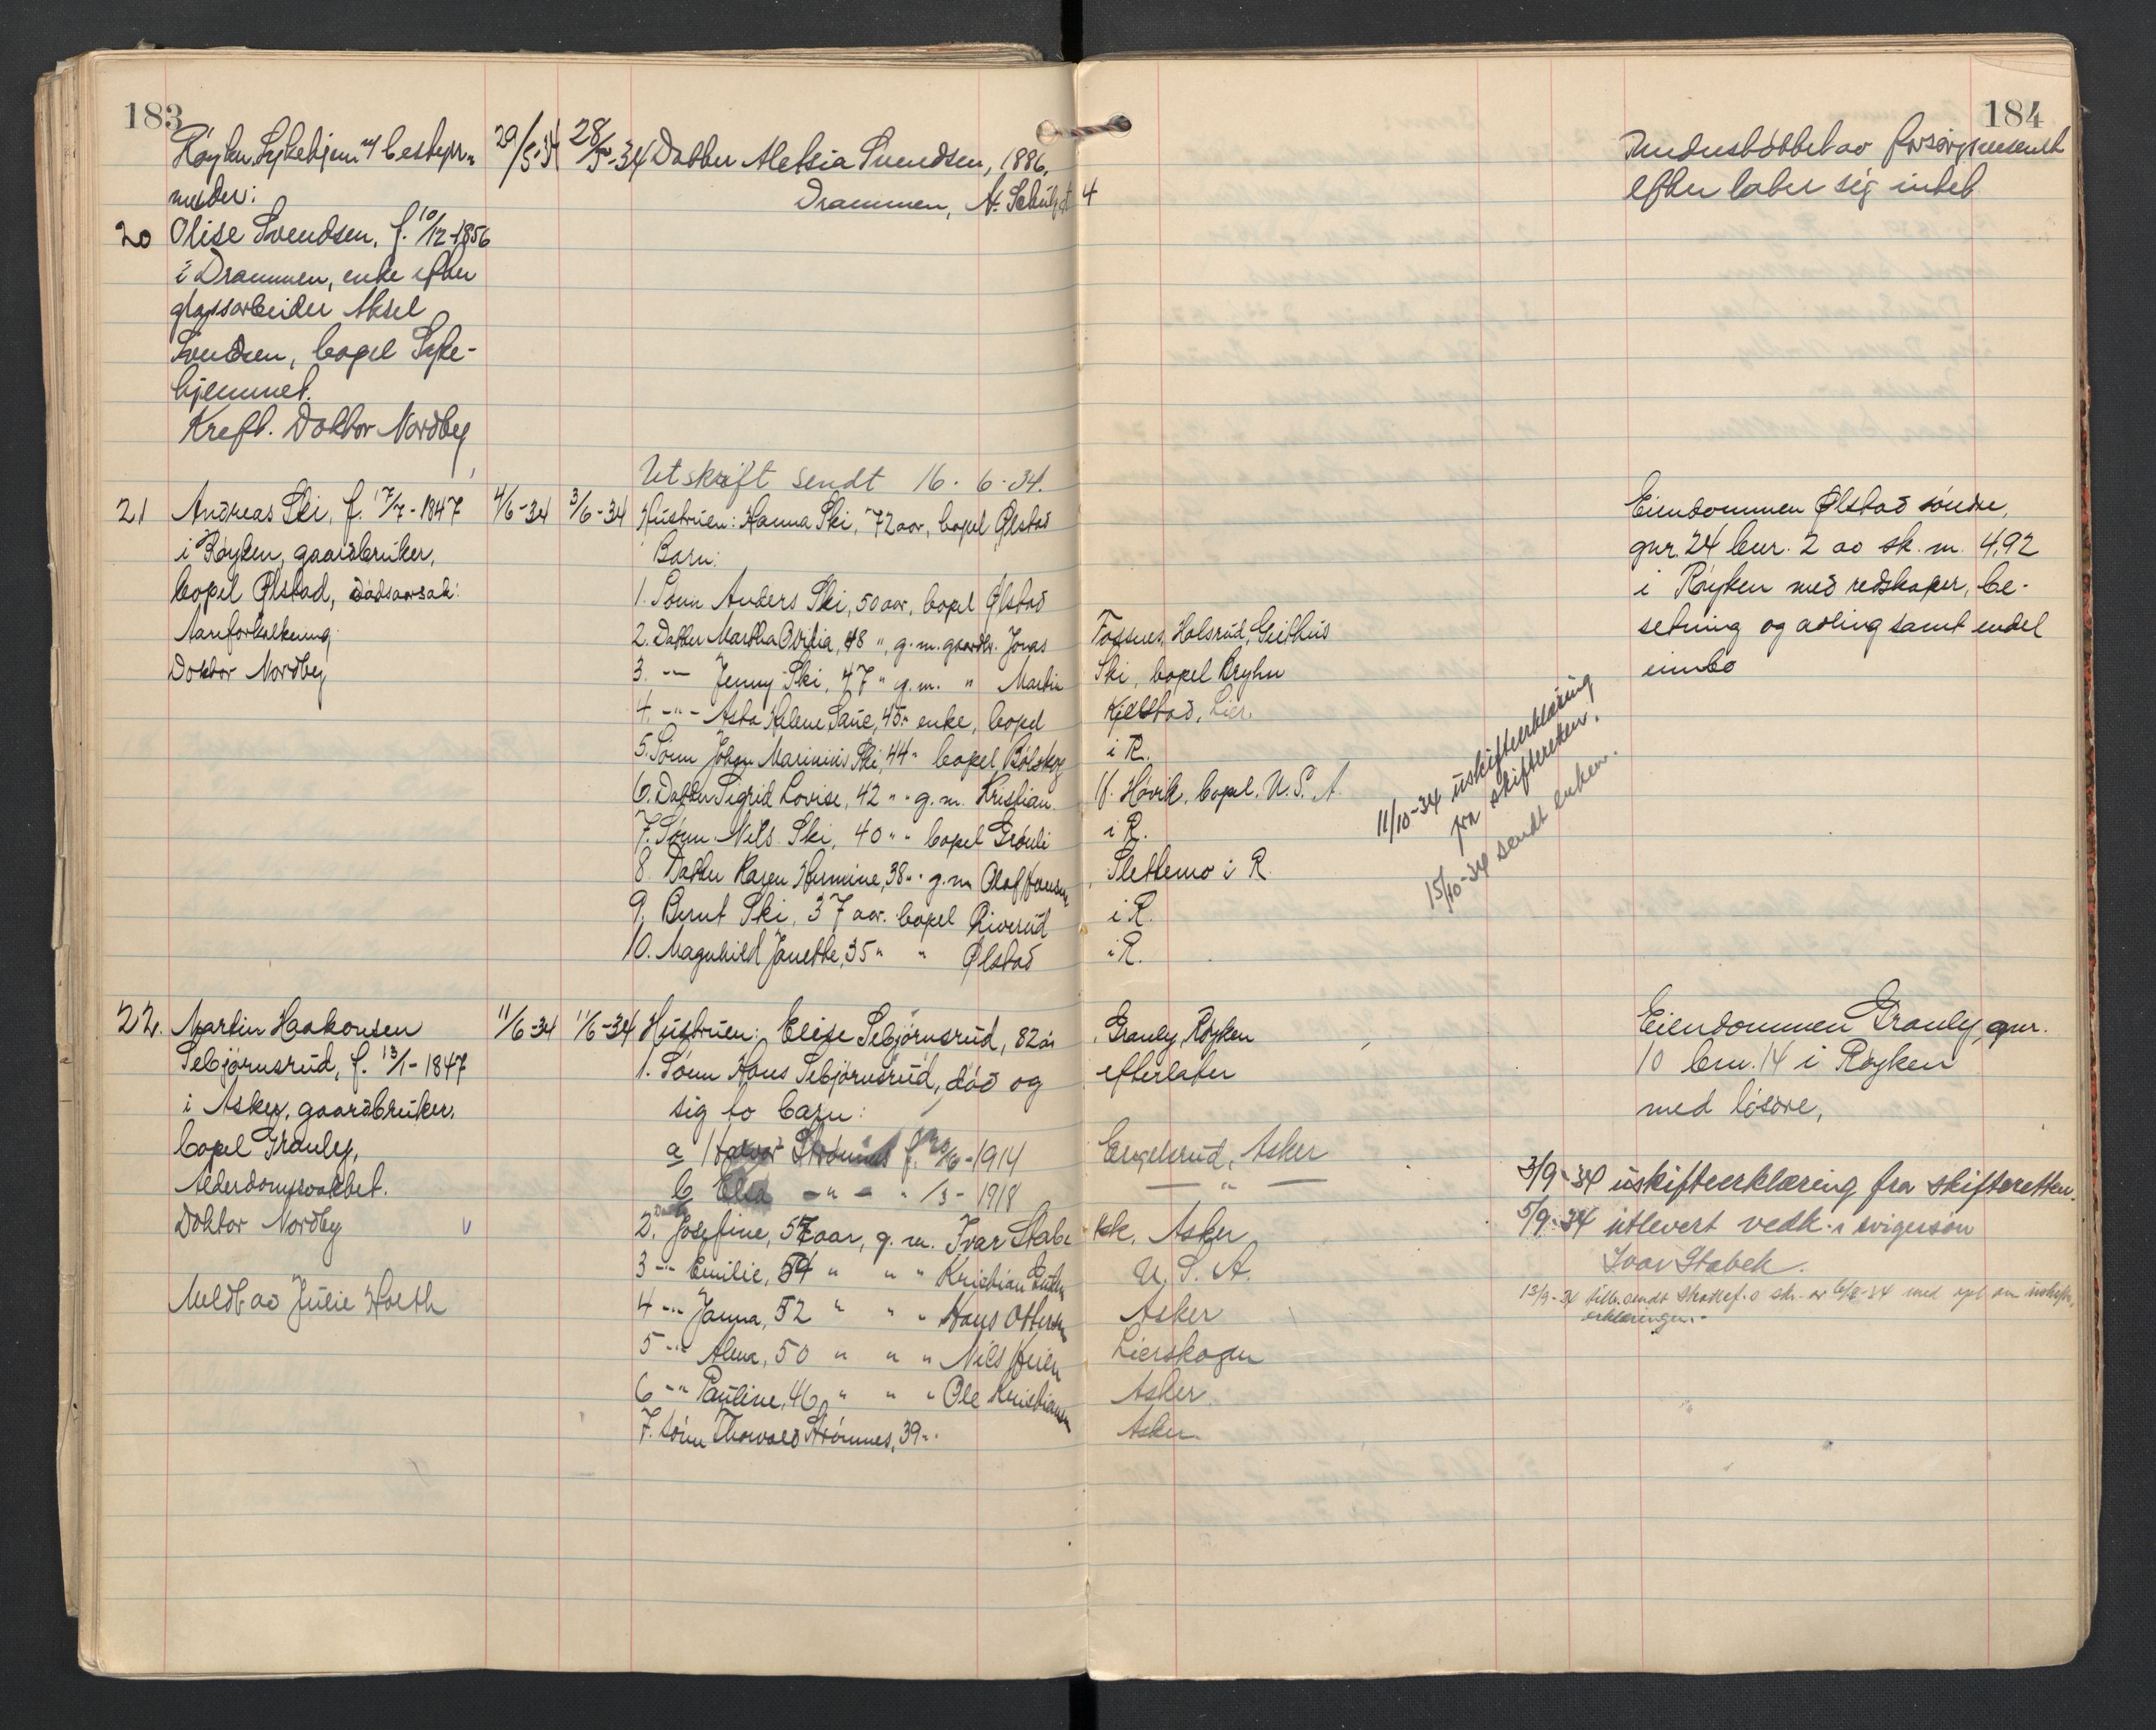 183
Røyken Sykehjem v/ bestyr-
melder:
29/5-34
28/5-34
Datter Aletsia Svendsen, 1886,
Drammen, N. 4
20 Olise Svendsen, f. 10/12-1856
i Drammen, enke efter
glassarbeider Aksel
Svendsen, bopel Syke-
hjemmet.
Kreft. Doktor Nordby
Utskrift sendt 16.6.34.
21 Andreas Ski, f. 17/7-1847
i Røyken, gaardbruker,
bopel Ølstad, dødsaarsak:
Aareforkalkning.
Doktor Nordby
4/6-34
3/6-34
Hustruen: Hanna Ski, 72 aar, bopel Ølstad
Barn:
1. Sønn Anders Ski, 50 aar, bopel Ølstad
2. Datter Martha Ovidia, 48 ", g.m. gaardbr. Jonas Fossnes, Holsrud, Geithus
3. -"- Jenny Ski, 47 " g.m. " Martin Ski, bopel Bryhn
4. -"- Asta Helene Saue, 45 " enke, bopel Kjelstad, Lier.
5. Sønn Johan Marinius Ski, 44 " bopel Bølskog i R.
6. Datter Sigrid Lovise, 42 " g.m. Kristian H. Høvik, bopel U.S.A
7. Sønn Nils Ski, 40 " bopel Grønli i R.
8. Datter Karen Hermine, 38 " g.m. Olaf Hansen, Slettemo i R.
9. Bernt Ski, 37 aar. bopel Riverud i R.
10. Magnhild Janette, 35 " " Ølstad i R.
22. Martin Haakonsen
Sebjørnsrud, f. 13/1-1847
i Asker, gaardbruker,
bopel Granly,
Alderdomssvakhet.
Doktor Nordby
Meldt av Julie Hoeth
11/6-34
11/6-34
Hustruen: Elise Sebjørnsrud, 82 år, Granly, Røyken
1. Sønn Hans Sebjørnsrud, død og efterlater
sig to barn:
a Halvor f. 20/6-1914 Engelsrud, Asker
b Elsa -"- " /3-1918 -"-
2. Datter Josefine, 57 aar, g.m. Ivar Stabekk, Asker
3 -"- Emilie, 54 " " " Kristian U.S.A.
4 -"- Janna, 52 " " " Hans Ottersen Asker
5 -"- Alma, 50 " " " Nils Heien Lierskogen
6 -"- Pauline, 46 " " " Ole Kristiansen Asker.
7. Sønn Thorvald Strømnes, 39 " Asker
184
Understøttet av forsorgsvesenet
efterlater sig intet
Eiendommen Ølstad søndre,
gnr. 24 bnr. 2 av sk. m. 4,92
i Røyken med redskaper, be-
setning og avling samt endel
innbo
11/10-34 uskifteerklæring
fra skifteretten.
15/10-34 sendt enken.
Eiendommen Granly, gnr.
10 bnr. 14 i Røyken
med løsøre,
3/9-34 uskifteerklæring fra skifteretten.
5/9-34 utlevert vedk. svigersøn
Ivar Stabek.
13/9-34 sendt 6/8-34 med om uskifte-
erklæringen.